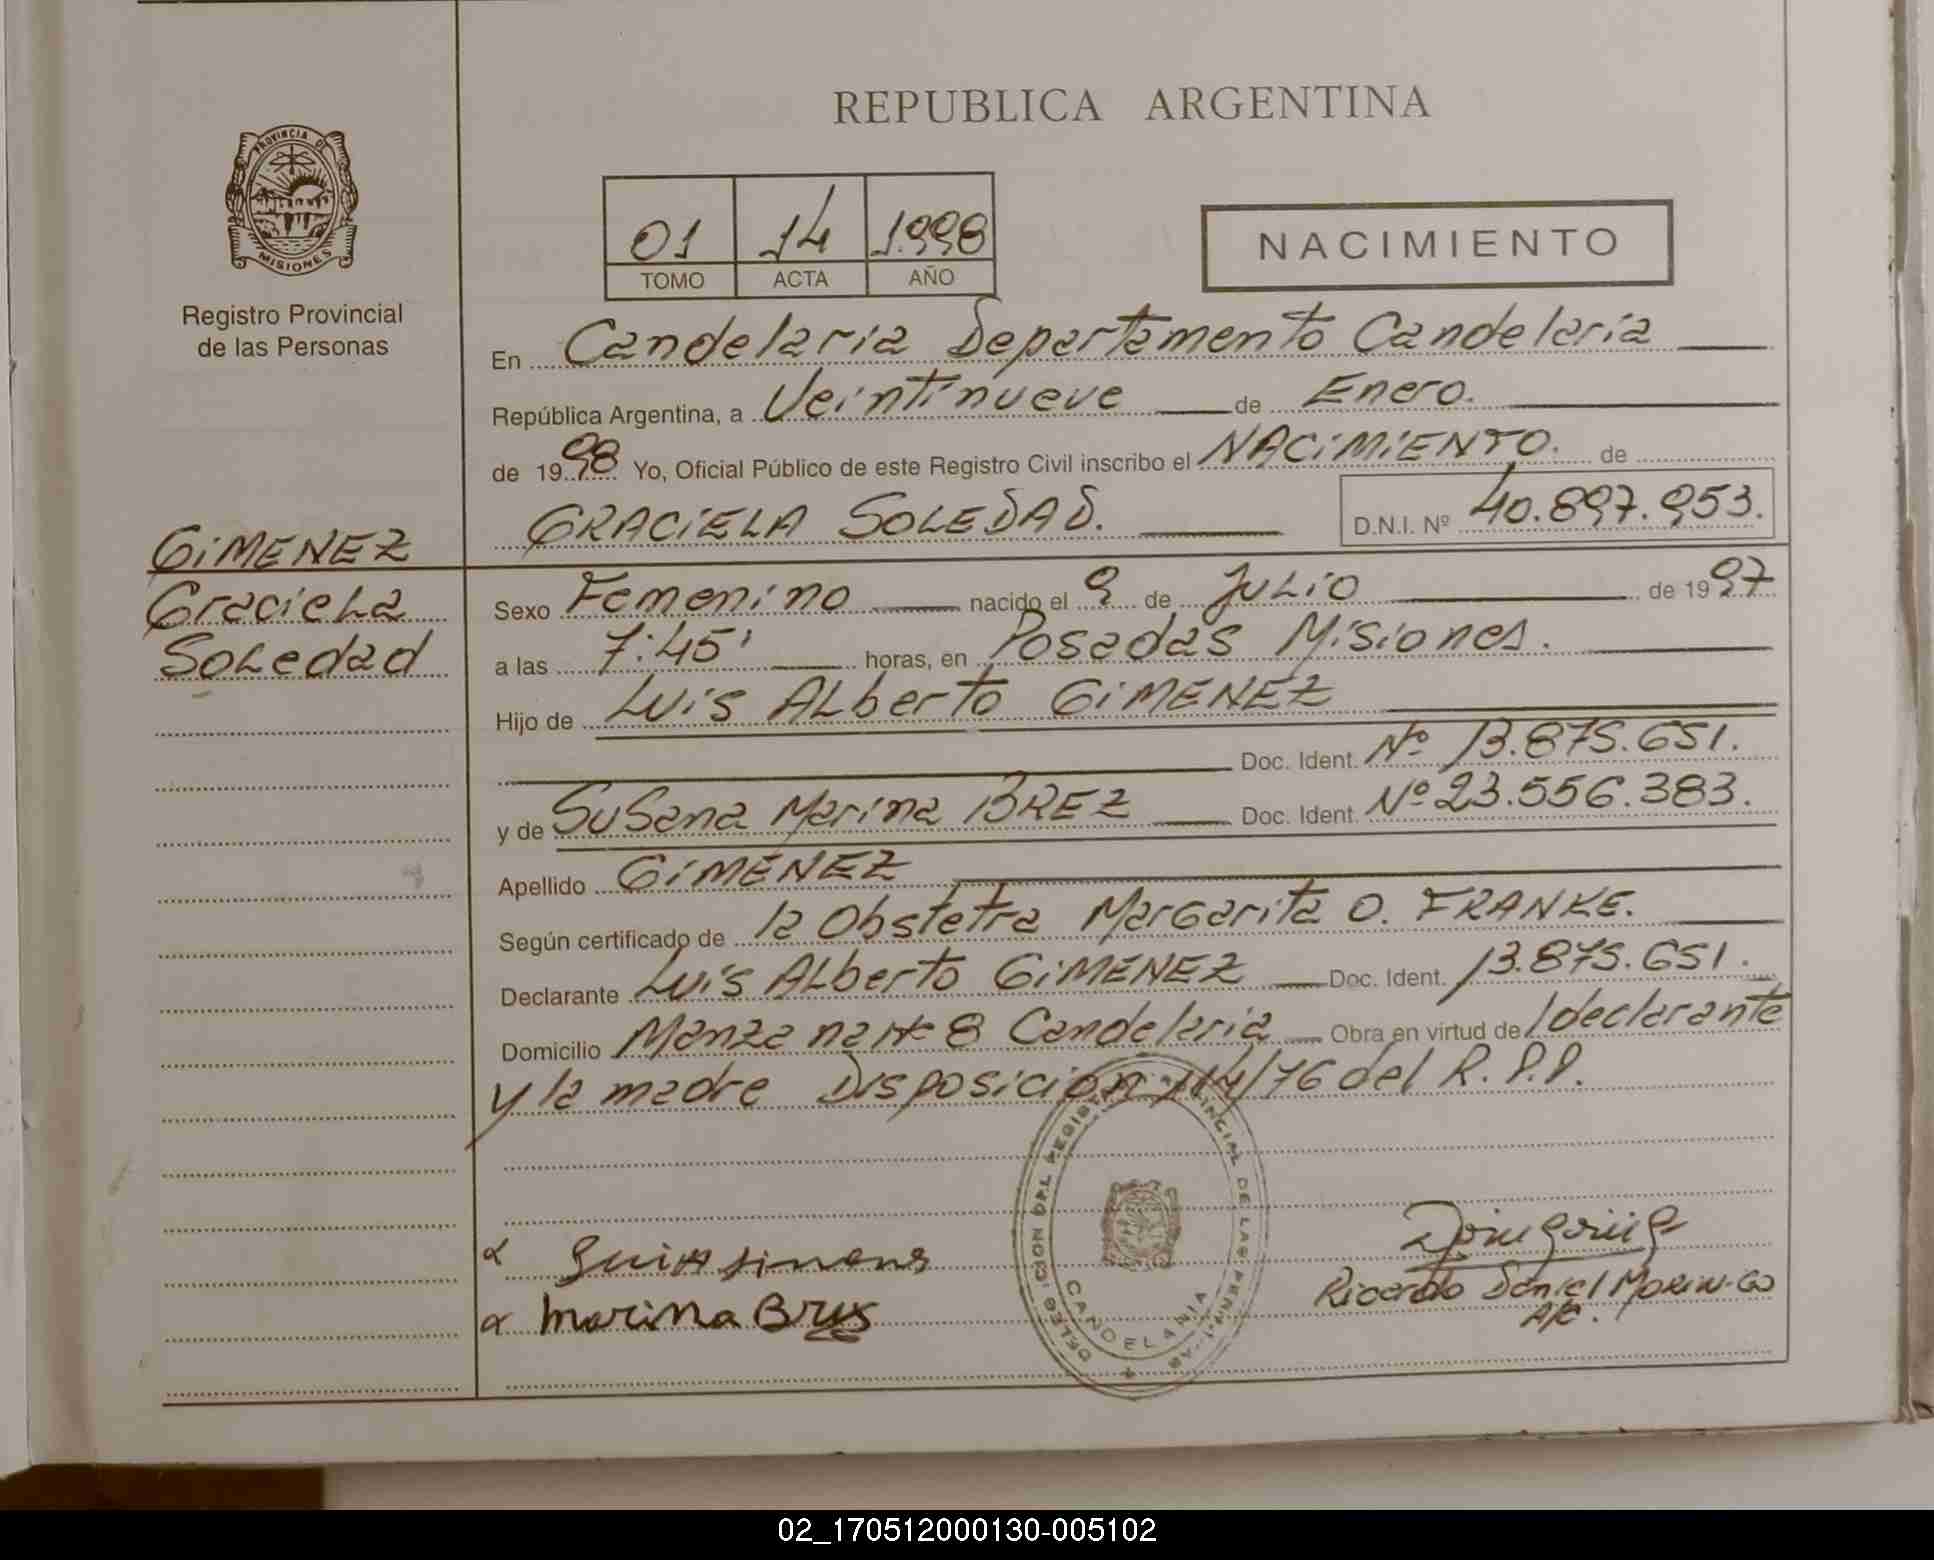 REPUBLICA ARGENTINA
PROVINCIA DE
MISIONES
Registro Provincial
de las Personas
01 14 1.998
TOMO ACTA AÑO
NACIMIENTO
En Candelaria Departamento Candelaria
República Argentina, a Veintinueve de Enero.
de 1998 Yo, Oficial Público de este Registro Civil inscribo el NACIMIENTO. de
GRACIELA SOLEDAD. D.N.I. Nº 40.897.953.
GIMENEZ
Graciela
Soledad
Sexo Femenino nacido el 9 de Julio de 1997
a las 7:45' horas, en Posadas Misiones.
Hijo de Luis Alberto GIMENEZ
Doc. Ident. Nº 13.875.651.
y de Susana Marina BREZ Doc. Ident. Nº 23.556.383.
Apellido GIMENEZ
Según certificado de la Obstetra Margarita O. FRANKE.
Declarante Luis Alberto GIMENEZ Doc. Ident. 13.875.651.
Domicilio Manzana 8 Candelaria Obra en virtud de declarante
y la madre Disposicion 114/76 del R.P.P.
Marina
Ricardo Daniel
DELEGACION DEL REGISTRO PROVINCIAL DE LAS PERSONAS
CANDELARIA
02_170512000130-005102